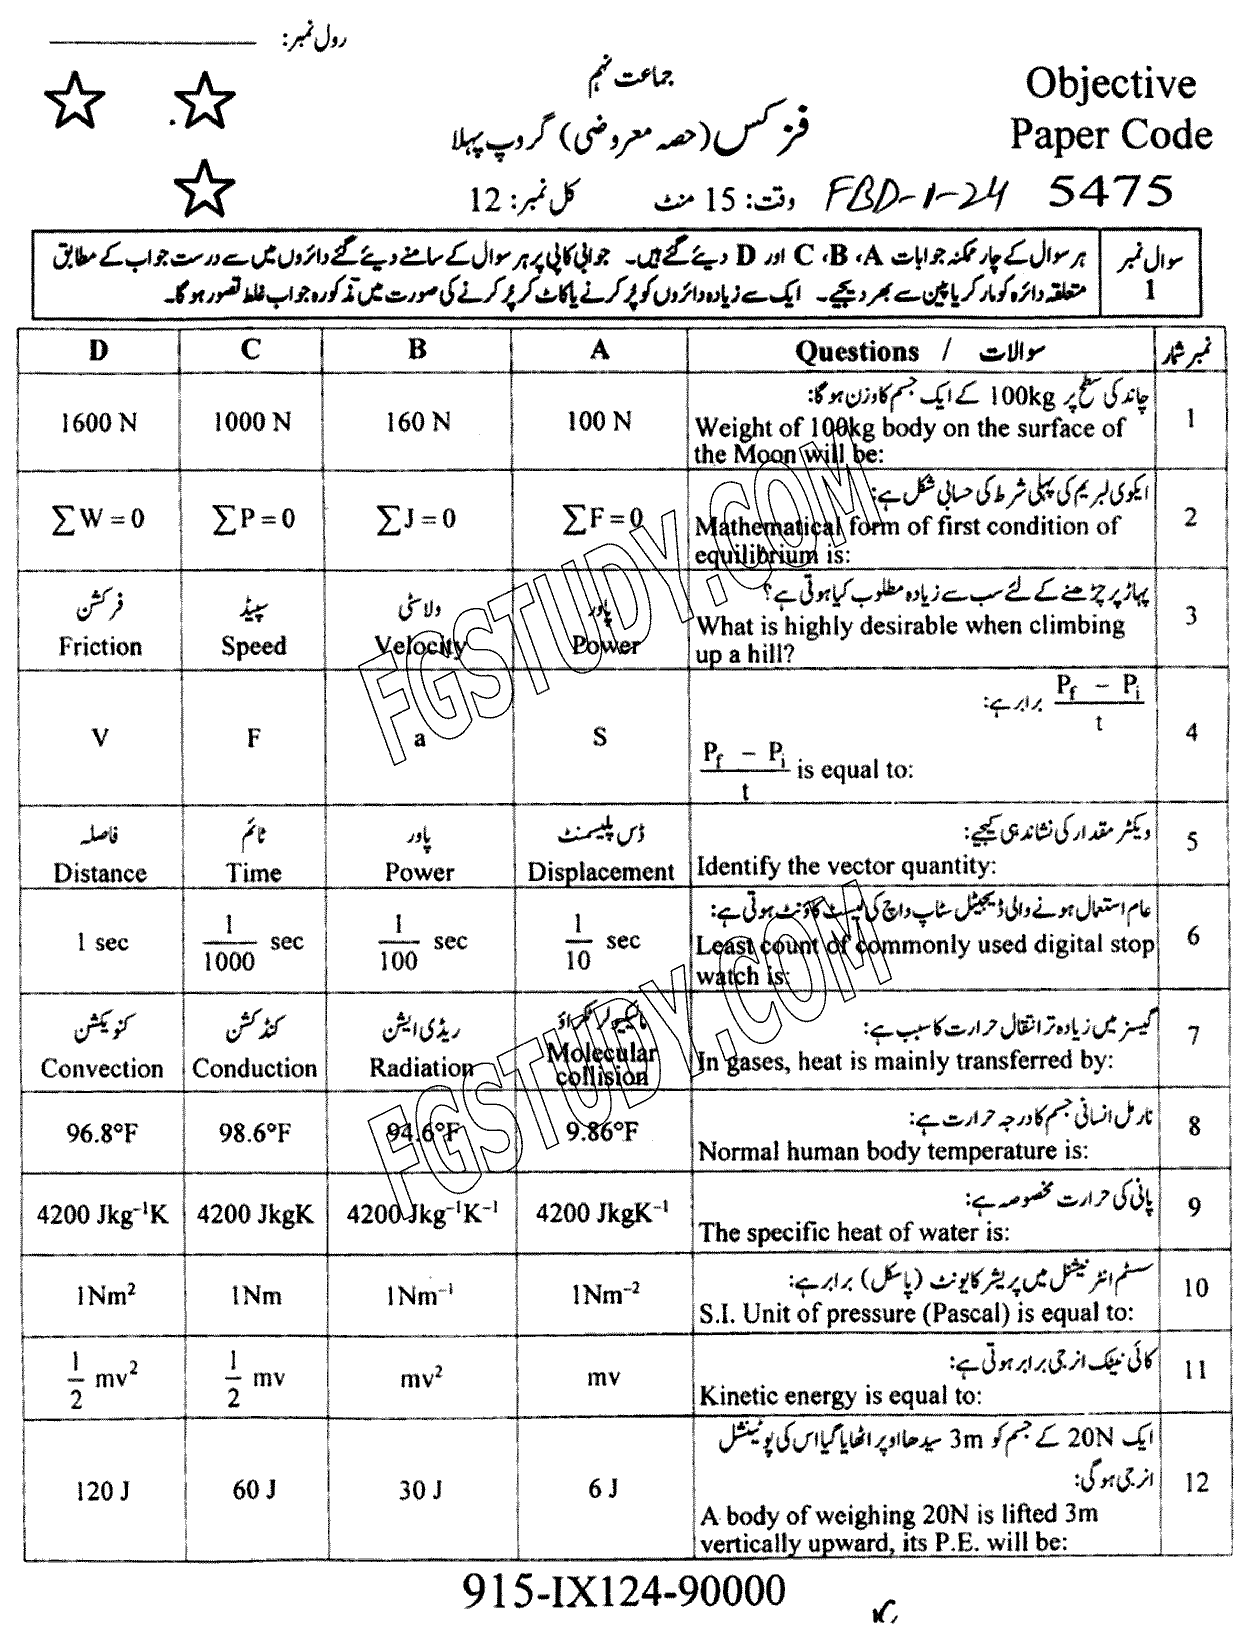 رول نمبر: ____________
جماعت نہم
Objective
Paper Code
فزکس (حصہ معروضی) گروپ پہلا
5475
FBD-1-24
وقت: 15 منٹ
کل نمبر: 12
سوال نمبر 1
ہر سوال کے چار ممکنہ جوابات A، B، C اور D دیئے گئے ہیں۔ جوابی کاپی پر ہر سوال کے سامنے دیئے گئے دائروں میں سے درست جواب کے مطابق
متعلقہ دائرہ کو مارکر یا پین سے بھر دیجیے۔ ایک سے زیادہ دائروں کو پُر کرنے یا کاٹ کر پُر کرنے کی صورت میں مذکورہ جواب غلط تصور ہوگا۔
نمبر شمار | سوالات / Questions | A | B | C | D
1 | چاند کی سطح پر 100kg کے ایک جسم کا وزن ہوگا:
Weight of 100kg body on the surface of
the Moon will be: | 100 N | 160 N | 1000 N | 1600 N
2 | ایکوی لبریم کی پہلی شرط کی حسابی شکل ہے:
Mathematical form of first condition of
equilibrium is: | ∑F = 0 | ∑J = 0 | ∑P = 0 | ∑W = 0
3 | پہاڑ پر چڑھنے کے لئے سب سے زیادہ مطلوب کیا ہوتی ہے؟
What is highly desirable when climbing
up a hill? | پاور Power | ولاسٹی Velocity | سپیڈ Speed | فرکشن Friction
4 | (P_f − P_i)/t برابر ہے:
(P_f − P_i)/t is equal to: | S | a | F | V
5 | ویکٹر مقدار کی نشاندہی کیجیے:
Identify the vector quantity: | ڈس پلیسمنٹ Displacement | پاور Power | ٹائم Time | فاصلہ Distance
6 | عام استعمال ہونے والی ڈیجیٹل سٹاپ واچ کی لیسٹ کاؤنٹ ہوتی ہے:
Least count of commonly used digital stop
watch is: | 1/10 sec | 1/100 sec | 1/1000 sec | 1 sec
7 | گیسز میں زیادہ تر انتقال حرارت کا سبب ہے:
In gases, heat is mainly transferred by: | مالیکیولر ٹکراؤ Molecular collision | ریڈی ایشن Radiation | کنڈکشن Conduction | کنویکشن Convection
8 | نارمل انسانی جسم کا درجہ حرارت ہے:
Normal human body temperature is: | 9.86°F | 94.6°F | 98.6°F | 96.8°F
9 | پانی کی حرارت مخصوصہ ہے:
The specific heat of water is: | 4200 JkgK⁻¹ | 4200 Jkg⁻¹K⁻¹ | 4200 JkgK | 4200 Jkg⁻¹K
10 | سسٹم انٹرنیشنل میں پریشر کا یونٹ (پاسکل) برابر ہے:
S.I. Unit of pressure (Pascal) is equal to: | 1Nm⁻² | 1Nm⁻¹ | 1Nm | 1Nm²
11 | کائی نیٹک انرجی برابر ہوتی ہے:
Kinetic energy is equal to: | mv | mv² | 1/2 mv | 1/2 mv²
12 | ایک 20N کے جسم کو 3m سیدھا اوپر اٹھایا گیا اس کی پوٹینشل
انرجی ہوگی:
A body of weighing 20N is lifted 3m
vertically upward, its P.E. will be: | 6 J | 30 J | 60 J | 120 J
FGSTUDY.COM
FGSTUDY.COM
915-IX124-90000